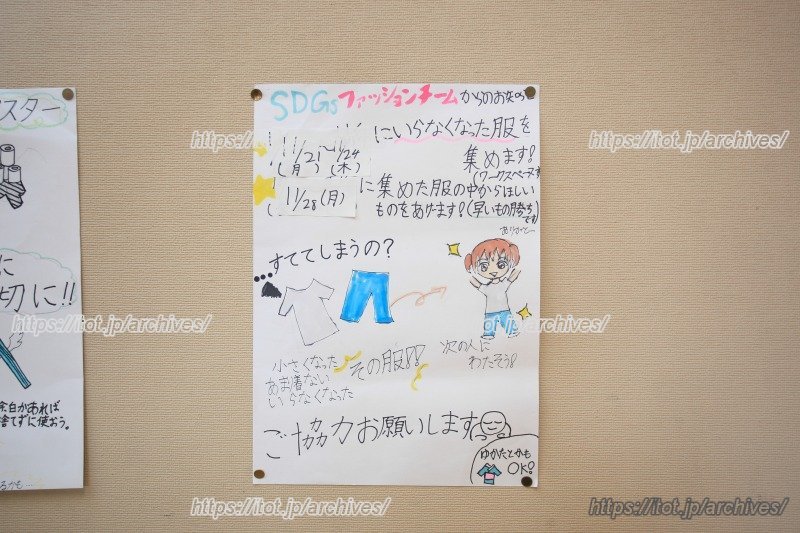 スター
に
切に!!
余白があれば
捨てずに使おう。
SDGsファッションチームからのお知
11/21～11/24
(月) (木)
にいらなくなった服を
集めます!
(ワークスペース
11/28(月)
に集めた服の中からほしい
ものをあげます!(早いもの勝ち
です)
すててしまうの?
小さくなった
あま着ない
いらなくなった
その服!!
次の人に
わたそう!
ご協力お願いします
ゆかたとかも
OK!
https://itot.jp/archives/
https://itot.jp/archives/
https://itot.jp/archives/
https://itot.jp/archives/
https://itot.jp/archives/
https://itot.jp/archives/